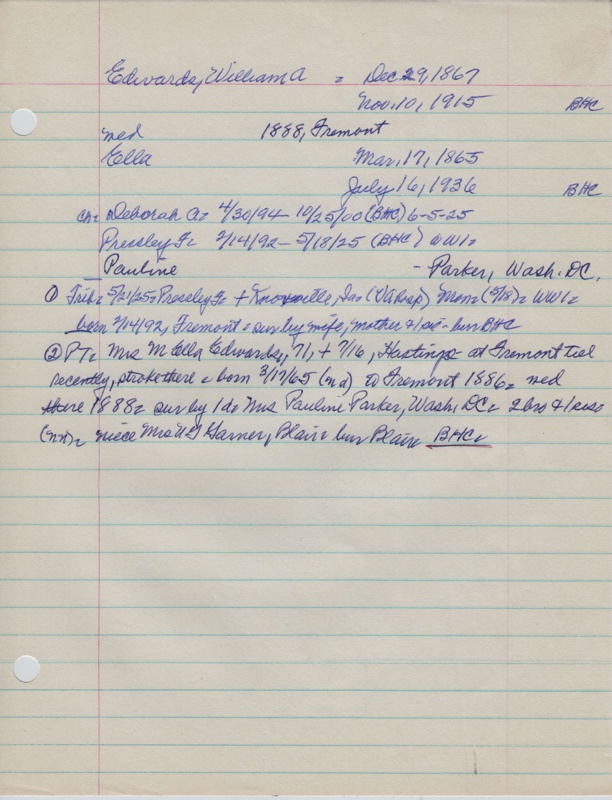 Edwards, William A = Dec 29, 1867
Nov. 10, 1915 BHC
med 1888, Fremont
Ella Mar. 17, 1865
July 16, 1936 BHC
ch= Deborah A= 4/30/94 - 10/25/00 (BHC) 6-5-25
Pressley F= 2/14/92 - 5/18/25 (BHC) WWI=
Pauline - Parker, Wash. DC.
① Trib= 5/21/25= Pressley F= + Knoxville, Ia= (VA Hosp) Mon= (5/18)= WWI=
born 2/14/92, Fremont= sur by wife, mother & 1 sis= bur BHC
② PT= Mrs M Ella Edwards, 71, + 7/16, Hastings= at Fremont til
recently, stroke there= born 3/17/65 (nd) to Fremont 1886= wed
there 1888= sur by 1 d= Mrs Pauline Parker, Wash. DC= 2 bro & 1 sis=
(nn)= niece Mrs Garner, Blair= bur Blair BHC=